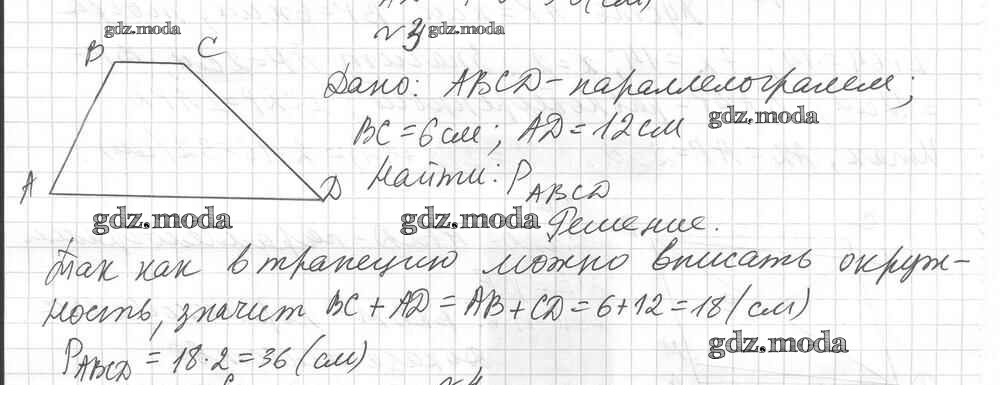 gdz.moda
№3 gdz.moda
B C
Дано: ABCD – параллелограмм;
BC = 6 см; AD = 12 см gdz.moda
Найти: P ABCD
A D
gdz.moda gdz.moda Решение.
Так как в трапецию можно вписать окруж-
ность, значит BC + AD = AB + CD = 6 + 12 = 18 (см)
gdz.moda
P ABCD = 18 · 2 = 36 (см)